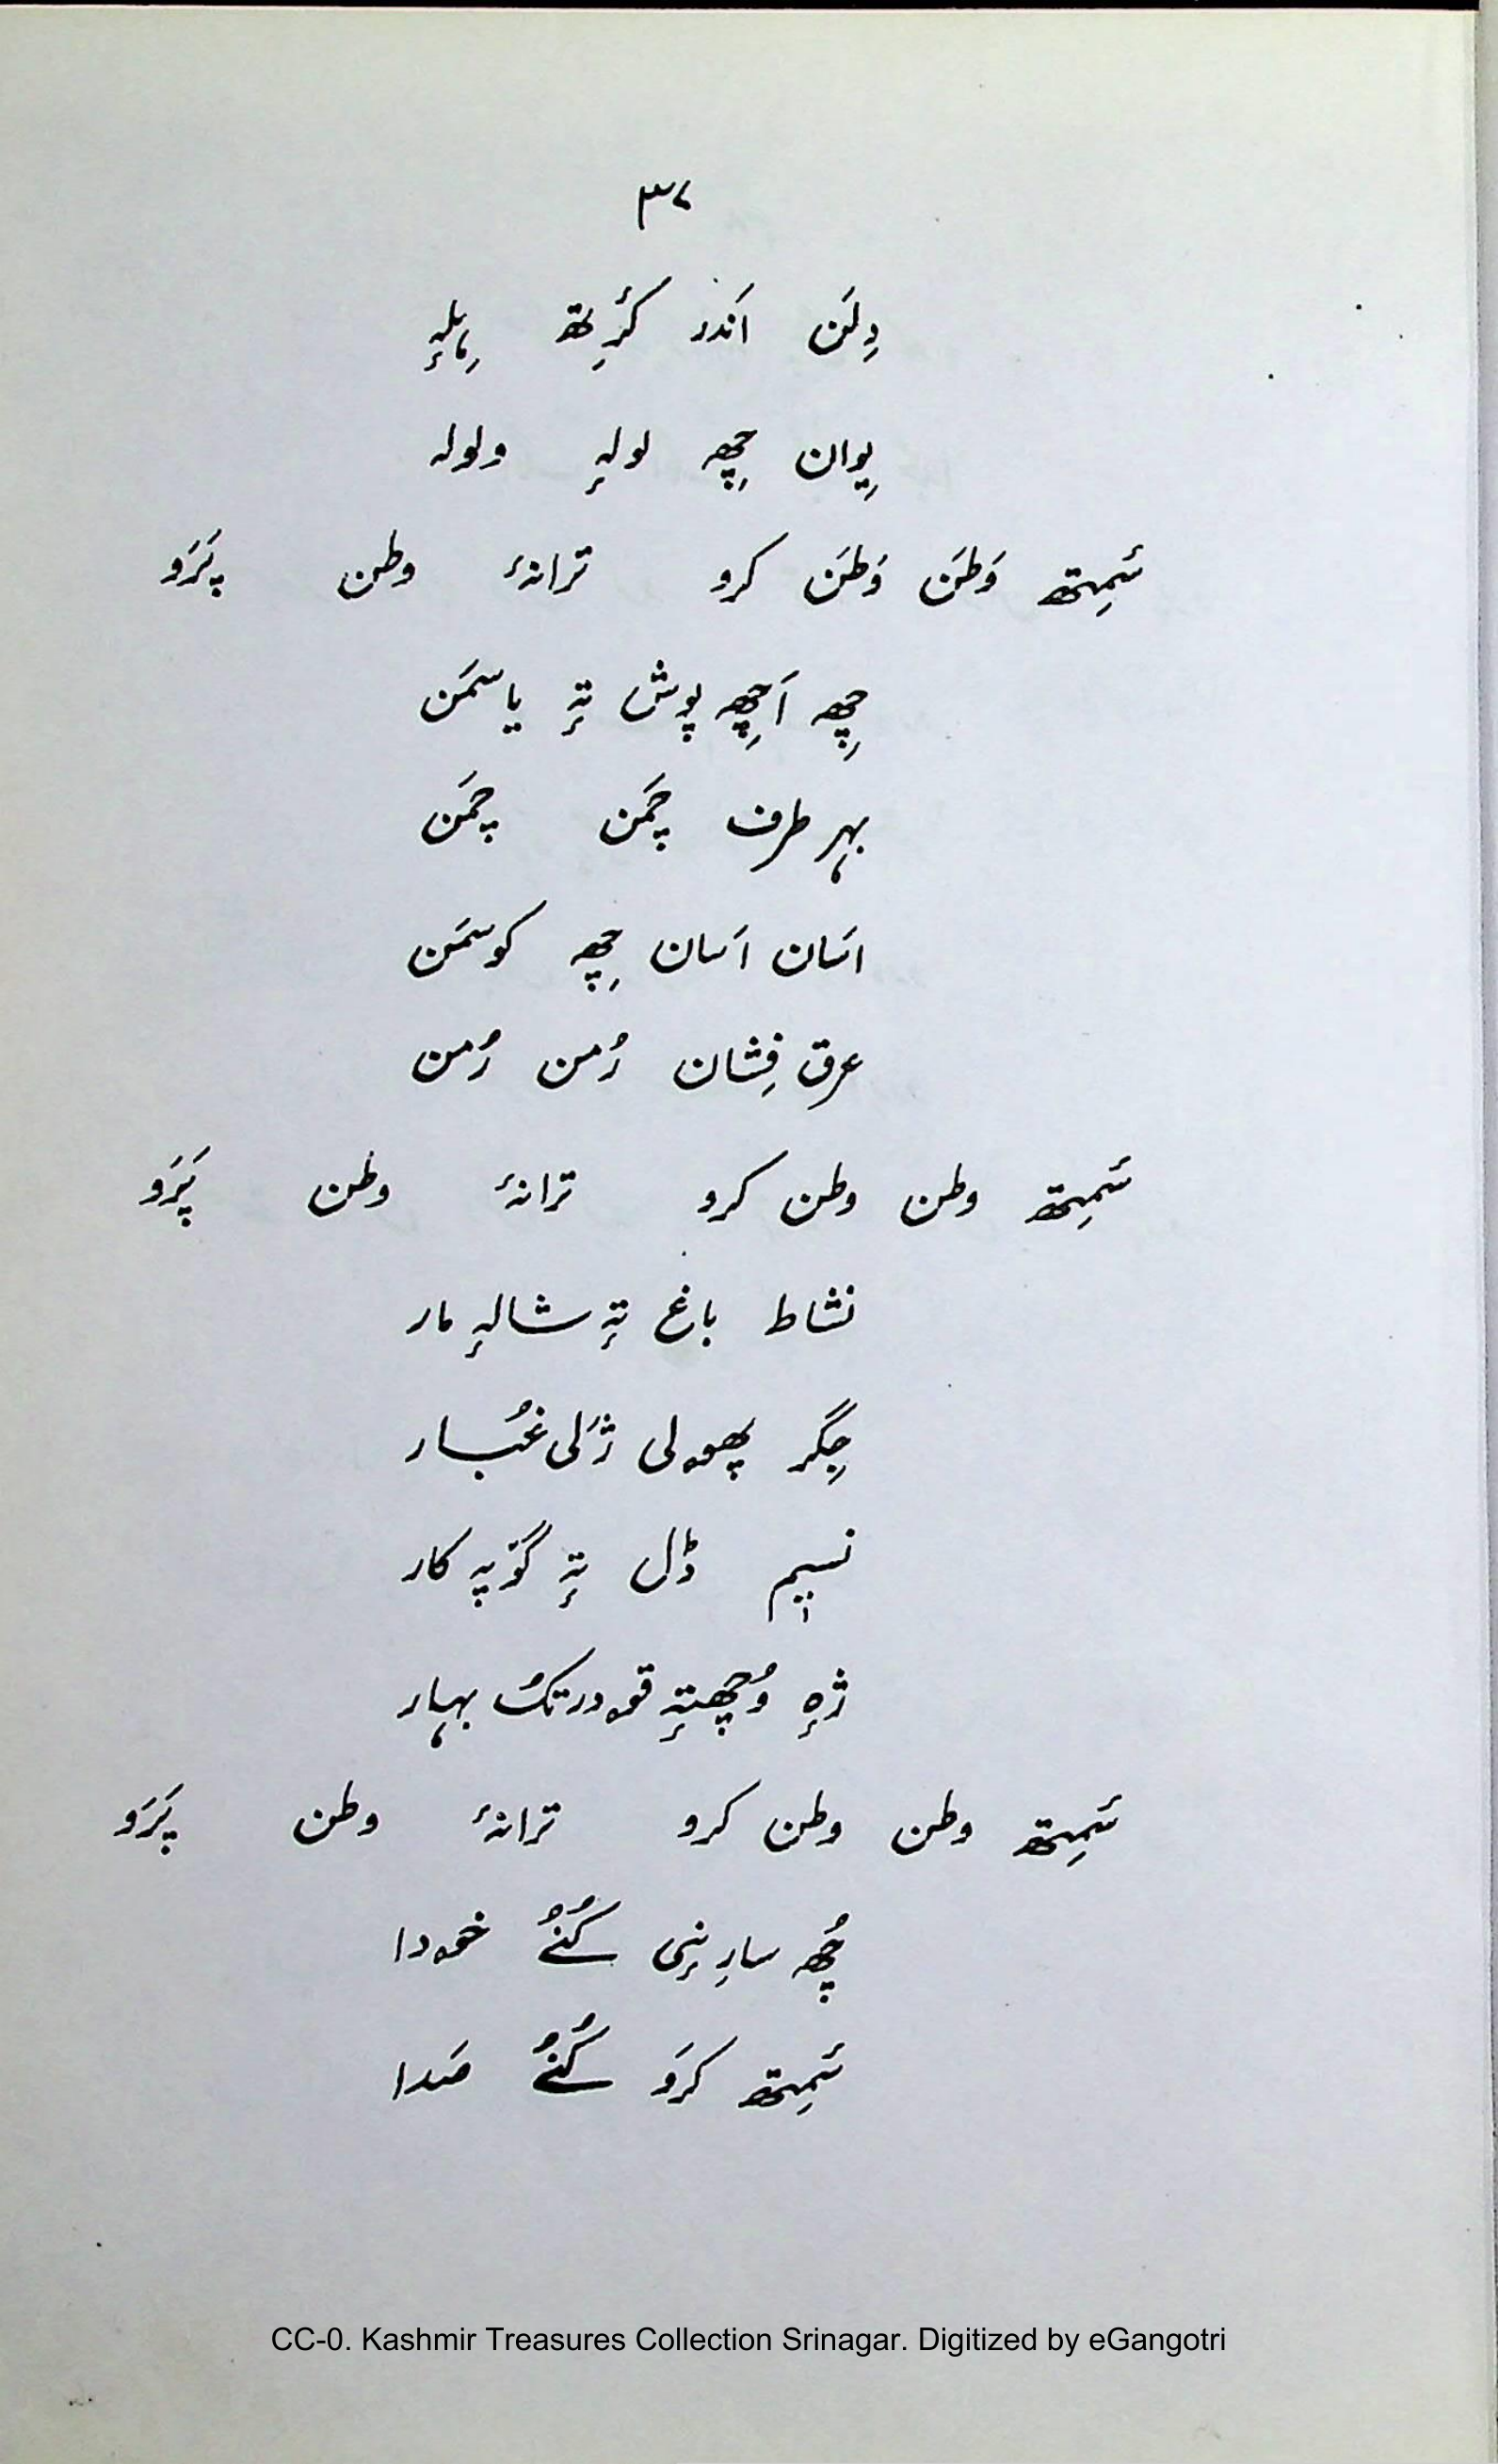 ۳۷
دِلَن اَندر کٔرِتھ
یِوان چِھہ لولہٕ ولولہ
سٔمِتھ وَطَن وَطَن کرو ترانۂ وطن پَرَو
چِھہ اَچِھہ پوش تہٕ یاسمَن
بہر طرف چَمَن چَمَن
اسَان اسَان چِھہ کوسمَن
عرق فِشان رُمن رُمن
سٔمِتھ وطن وطن کرو ترانۂ وطن پَرَو
نشاط باغ تہٕ شالہٕ مار
جِگر پھۄلی ژَلی غُبار
نسیم ڈل تہٕ گۄپہ کار
ژہٕ وُچھتہٕ قۄدرتُک بہار
سٔمِتھ وطن وطن کرو ترانۂ وطن پَرَو
چُھہ سارِنٕی کُنُے خۄدا
سٔمِتھ کرَو کُنُے صَدا
CC-0. Kashmir Treasures Collection Srinagar. Digitized by eGangotri